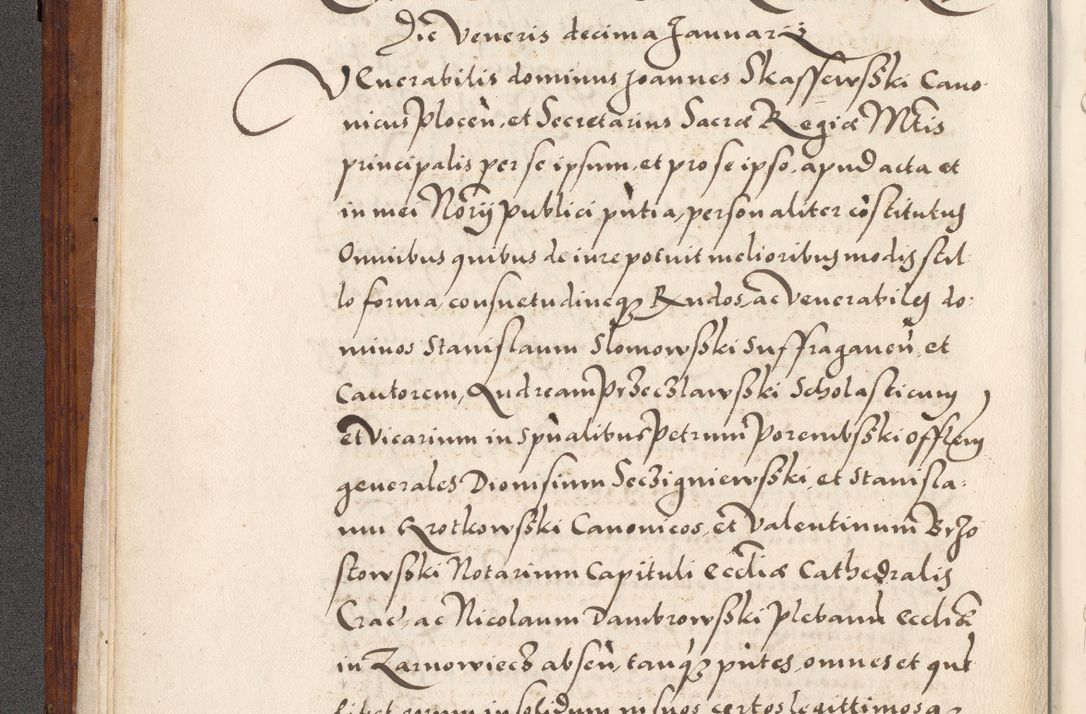 Die Veneris decima Januarij
VEnerabilis dominus Joannes Skassewsski Cano
nicus Plocen, et Secretarius Sacræ Regiæ Mtis
principalis per se ipsum, et pro se ipso, apud acta et
in mei Norij publici pntia, personaliter cõstitutus
Omnibus quibus de iure potuit melioribus modis stil
lo forma, consuetudineq3 Rndos, ac venerabiles do:
minos Stanislaum Slomowsski Suffraganen, et
Cantorem, Andream Przeczlawsski Scholasticum
et Vicarium in spualibus Petrum Porembsski Offlem
generales Dionisium Seczigniewsski, et Stanisla:
um Krotkowsski Canonicos, et Valentinum Brzo
stowsski Notarium Capituli eccliæ Cathedralis
Crac, ac Nicolaum Dambrowsski plebanum eccliæ
in Zarnowiecz absen, tanq3 pntes, omnes et qul
libet eorum in solidum ni suos certos legittimos q3